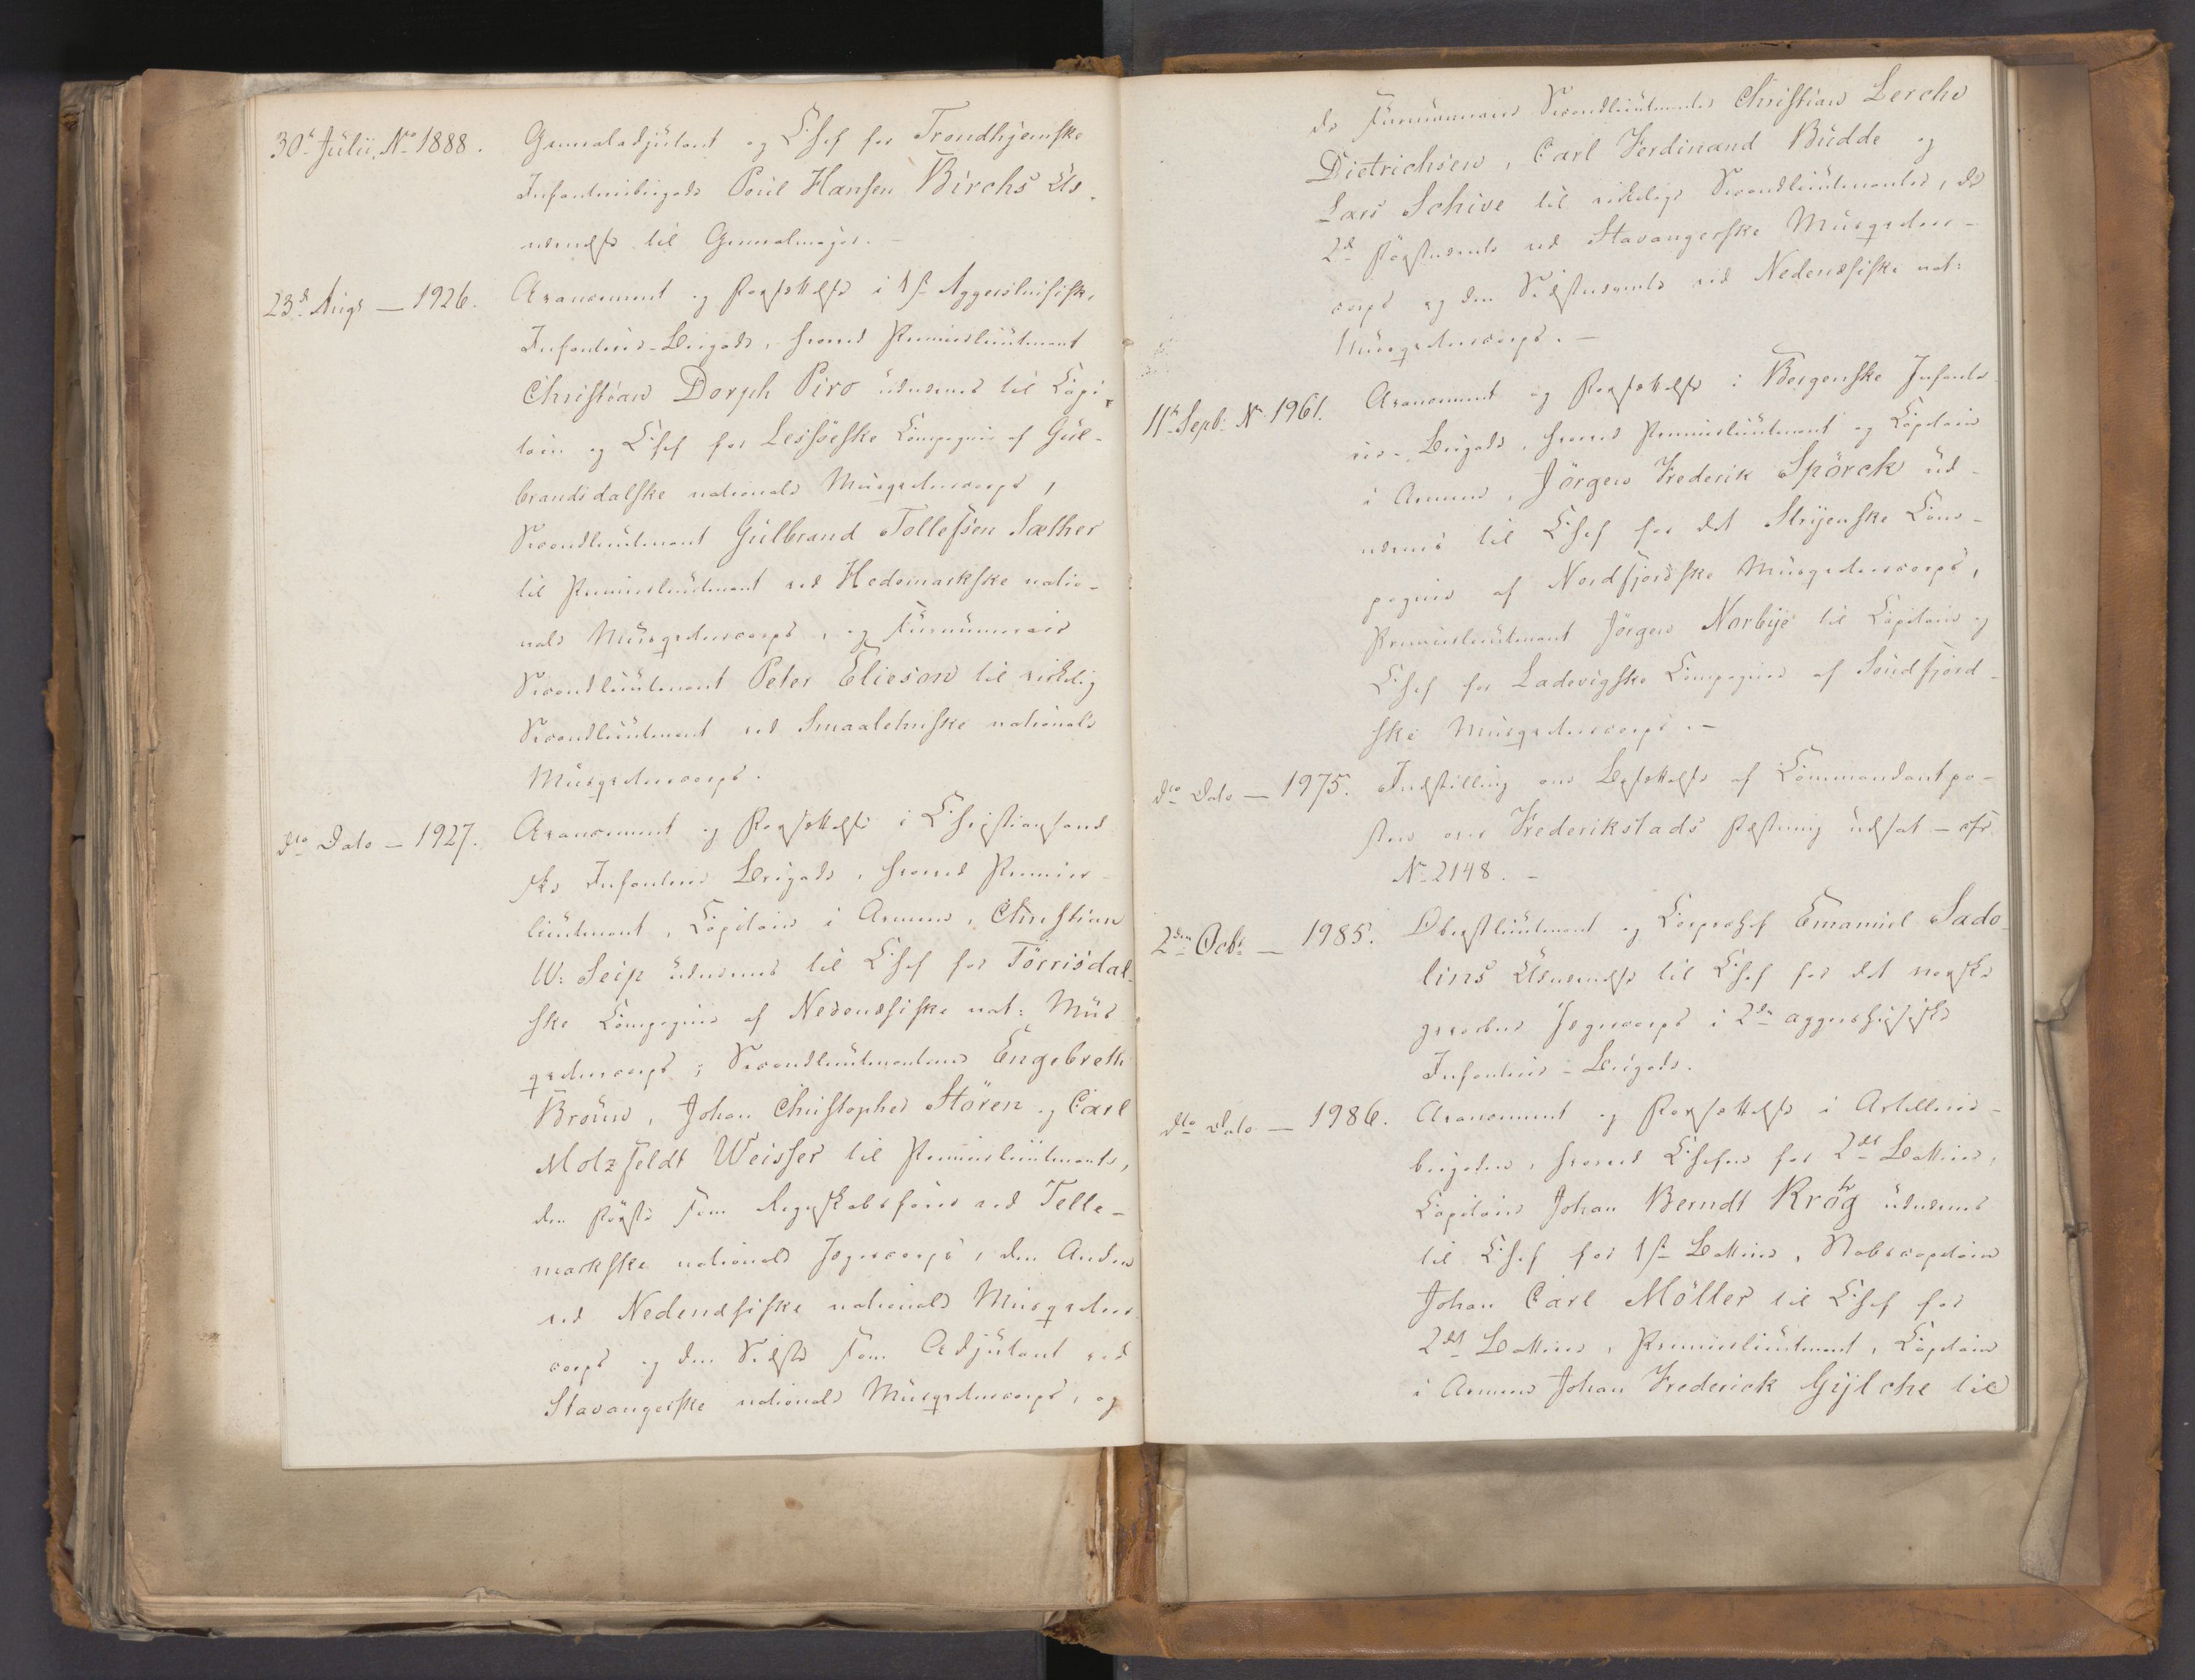 30te Julii, No 1888. Generaladjutant og Chef for Trondhjemske
Infanteribrigade Poul Hansen Birchs Ud-
nævnelse til Generalmajor. –
23de Augs – 1926. Avancement og Forsættelse i 1ste Aggershuisiske
Infanterie-Brigade, hvorved Premierlieutenant
Christian Dorph Piro udnævnes til Capi-
tain og Chef for Lessöeske Compagnie af Gul-
brandsdalske nationale Musqveteercorps,
Secondlieutenant Gulbrand Tollefsen Sæther
til Premierlieutenant ved Hedemarkske natio-
nale Musqveteercorps, og Surnumerair
Secondlieutenant Peter Elieson til virkelig
Secondlieutenant ved Smaalehnske nationale
Musqveteercorps.
dto Dato – 1927. Avancement og Forsættelse i Christiansand
ske Infanterie Brigade, hvorved Premier
lieutenant, Capitain i Armeen, Christian
W: Seip udnævnes til Chef for Törrisdal
ske Compagnie af Nedenæsiske nat: Mus
qveteercorps; Secondlieutenanterne Engebreth
Broun, Johan Christopher Stören og Carl
Motzfeldt Weisser til Premierlieutenants,
den förste som Regnskabsförer ved Telle-
markske nationale Jægercorps, den Anden
ved Nedenæsiske nationale Musqveteer
corps og den Sidste som Adjutant ved
Stavangerske nationale Musqveteercorps, og
de Surnumeraire Secondlieutenanter Christian Lerche
Dietrichsen, Carl Ferdinand Budde og
Lars Schive til virkelige Secondlieutenanter, de
2de förstnævnte ved Stavangerske Musqveteer-
corps og den Sidstnævnte ved Nedenæsiske nat:
Musqveteercorps. –
11te Septb: No 1961. Avancement og Forsættelse i Bergenske Infante
rie-Brigade, hvorved Premierlieutenant og Capitain
i Armeen, Jörgen Frederik Spörck ud-
nævnes til Chef for det Stryenske Com-
pagnie af Nordfjordske Musqveteercorps,
Premierlieutenant Jörgen Norbye til Capitain og
Chef for Ladevigske Compagnie af Söndfjord-
ske Musqveteercorps. –
dto Dato – 1975. Indstilling om Besættelse af Commandantpo-
sten over Frederikstads Fæstning udsat – cfr
No 2148. –
2den Octb: – 1985. Oberstlieutenant og Corpschef Emanuel Sado-
lins Udnævnelse til Chef for det norske
gevorbne Jægercorps i 2den aggershusiske
Infanterie-Brigade.
dto Dato – 1986. Avancement og Forsættelse i Artillerie-
brigaden, hvorved Chefen for 2det Batterie,
Capitain Johan Berndt Krog udnævnes
til Chef for 1ste Batterie, Stabscapitain
Johan Carl Möller til Chef for
2det Batterie, Premierlieutenant, Capitain
i Armeen Johan Frederick Gylche til